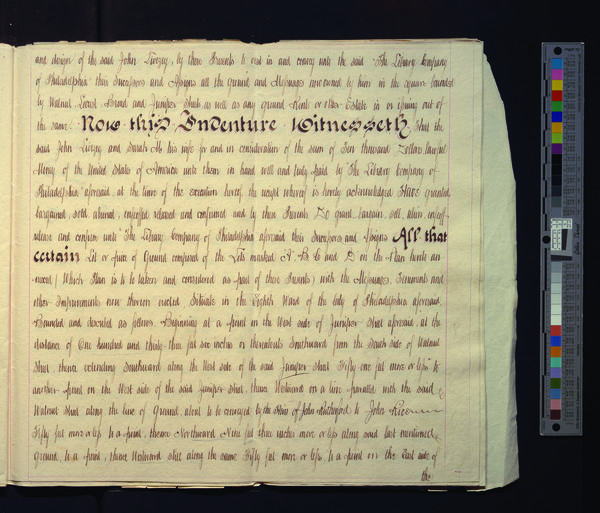 and design of the said John Livezey, by these Presents to vest in and convey unto the said "The Library Company
of Philadelphia" their Successors and Assigns all the Ground and Messuages now owned by him in the square bounded
by Walnut Locust Broad and Juniper Streets as well as any ground Rents or other Estate in or issuing out of
the same. Now this Indenture Witnesseth, that the
said John Livezey and Sarah M. his wife for and in consideration of the sum of Ten thousand Dollars lawful
Money of the United States of America unto them in hand well and truly paid by "The Library Company of
Philadelphia" aforesaid at the time of the execution hereof, the receipt whereof is hereby acknowledged Have granted
bargained, sold, aliened, enfeoffed, released and confirmed and by these Presents Do grant, bargain, sell, alien, enfeoff
release and confirm unto "The Library Company of Philadelphia" aforesaid their Successors and Assigns All that
certain Lot or piece of Ground composed of the Lots marked A. B. C and D on the Plan hereto an-
nexed, (Which Plan is to be taken and considered as part of these Presents) with the Messuages, Tenements and
other Improvements now thereon erected Situate in the Eighth Ward of the City of Philadelphia aforesaid,
Bounded and described as follows. Beginning at a point in the West side of Juniper Street aforesaid at the
distance of One hundred and thirty two feet six inches or thereabouts Southward from the South side of Walnut
Street, thence extending Southward along the West side of the said Juniper Street Fifty one feet more or less to
another point on the West side of the said Juniper Street, thence Westward on a line parallel with the said
Walnut Street along the line of Ground, about to be conveyed by the Heirs of John Rutherford to John Rice
Fifty feet more or less to a point, thence Northward Nine feet three inches more or less along said last mentioned
Ground, to a point, thence Westward still along the same Fifty feet more or less, to a point on the East side of
the